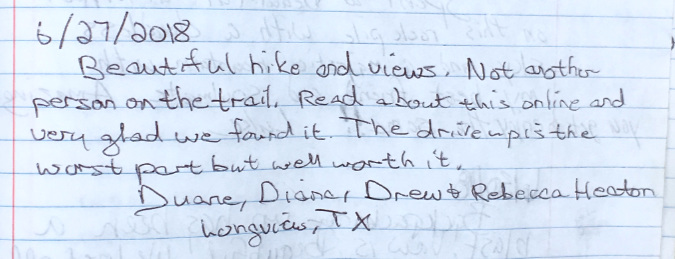 6/27/2018
Beautiful hike and views. Not another
person on the trail. Read about this online and
very glad we found it. The drive up is the
worst part but well worth it.
Duane, Diana, Drew & Rebecca Heaton
Longview, TX